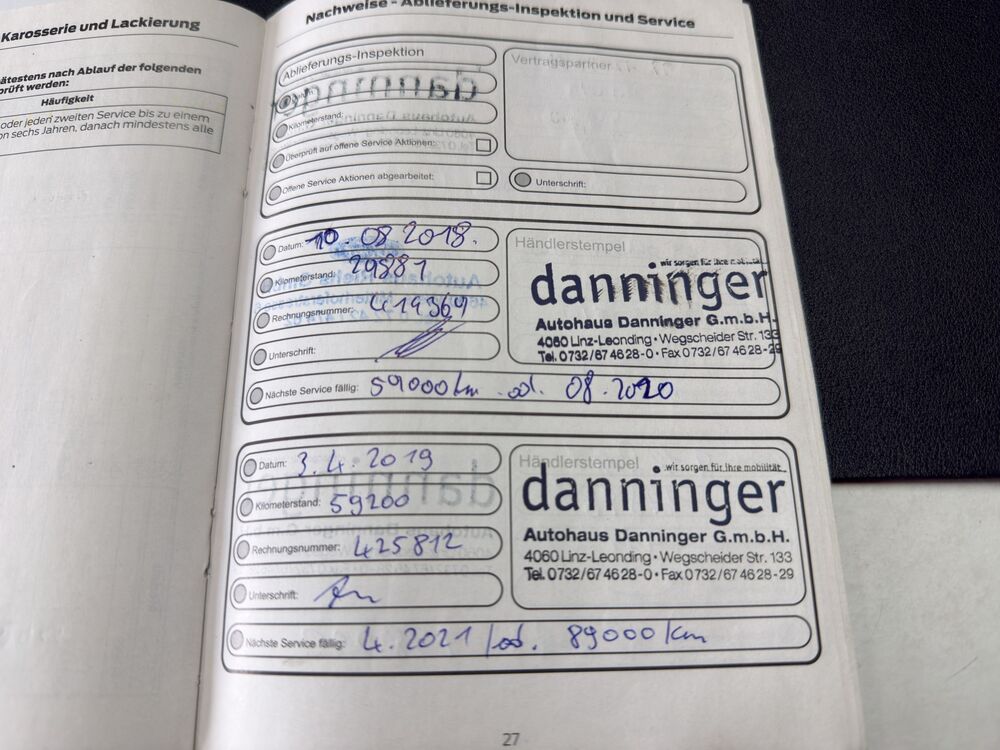 Karosserie und Lackierung
ätestens nach Ablauf der folgenden
rüft werden:
Häufigkeit
oder jeden zweiten Service bis zu einem
on sechs Jahren, danach mindestens alle
Nachweise - Ablieferungs-Inspektion und Service
Ablieferungs-Inspektion
Vertragspartner
Kilometerstand:
Überprüft auf offene Service Aktionen:
Offene Service Aktionen abgearbeitet:
Unterschrift:
Datum: 10.08.2018.
Kilometerstand: 29881
Rechnungsnummer: 419369
Unterschrift:
Nächste Service fällig: 59000 km od. 08.2020
Händlerstempel
wir sorgen für ihre mobilität
danninger
Autohaus Danninger G.m.b.H.
4060 Linz-Leonding · Wegscheider Str. 133
Tel. 0732/67 46 28-0 · Fax 0732/67 46 28-29
Datum: 3.4.2019
Kilometerstand: 59200
Rechnungsnummer: 425812
Unterschrift:
Nächste Service fällig: 4.2021/od. 89000 km
Händlerstempel
wir sorgen für ihre mobilität
danninger
Autohaus Danninger G.m.b.H.
4060 Linz-Leonding · Wegscheider Str. 133
Tel. 0732/67 46 28-0 · Fax 0732/67 46 28-29
27